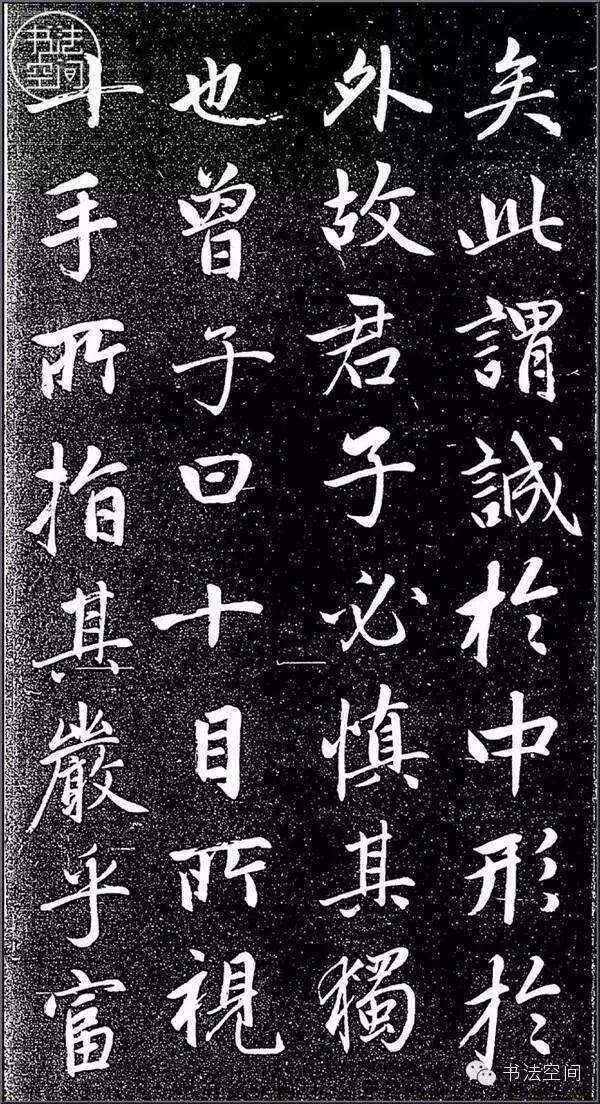 矣此謂誠於中形於
外故君子必慎其獨
也曾子曰十目所視
十手所指其嚴乎富
书法
空间
书法空间